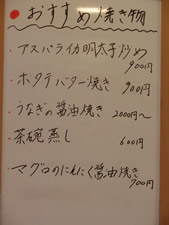 おすすめ焼き物
・アスパライカ明太子炒め
900円
・ホタテバター焼き 900円
・うなぎの醤油焼き 2000円〜
・茶碗蒸し 600円
・マグロのにんにく醤油焼き
900円